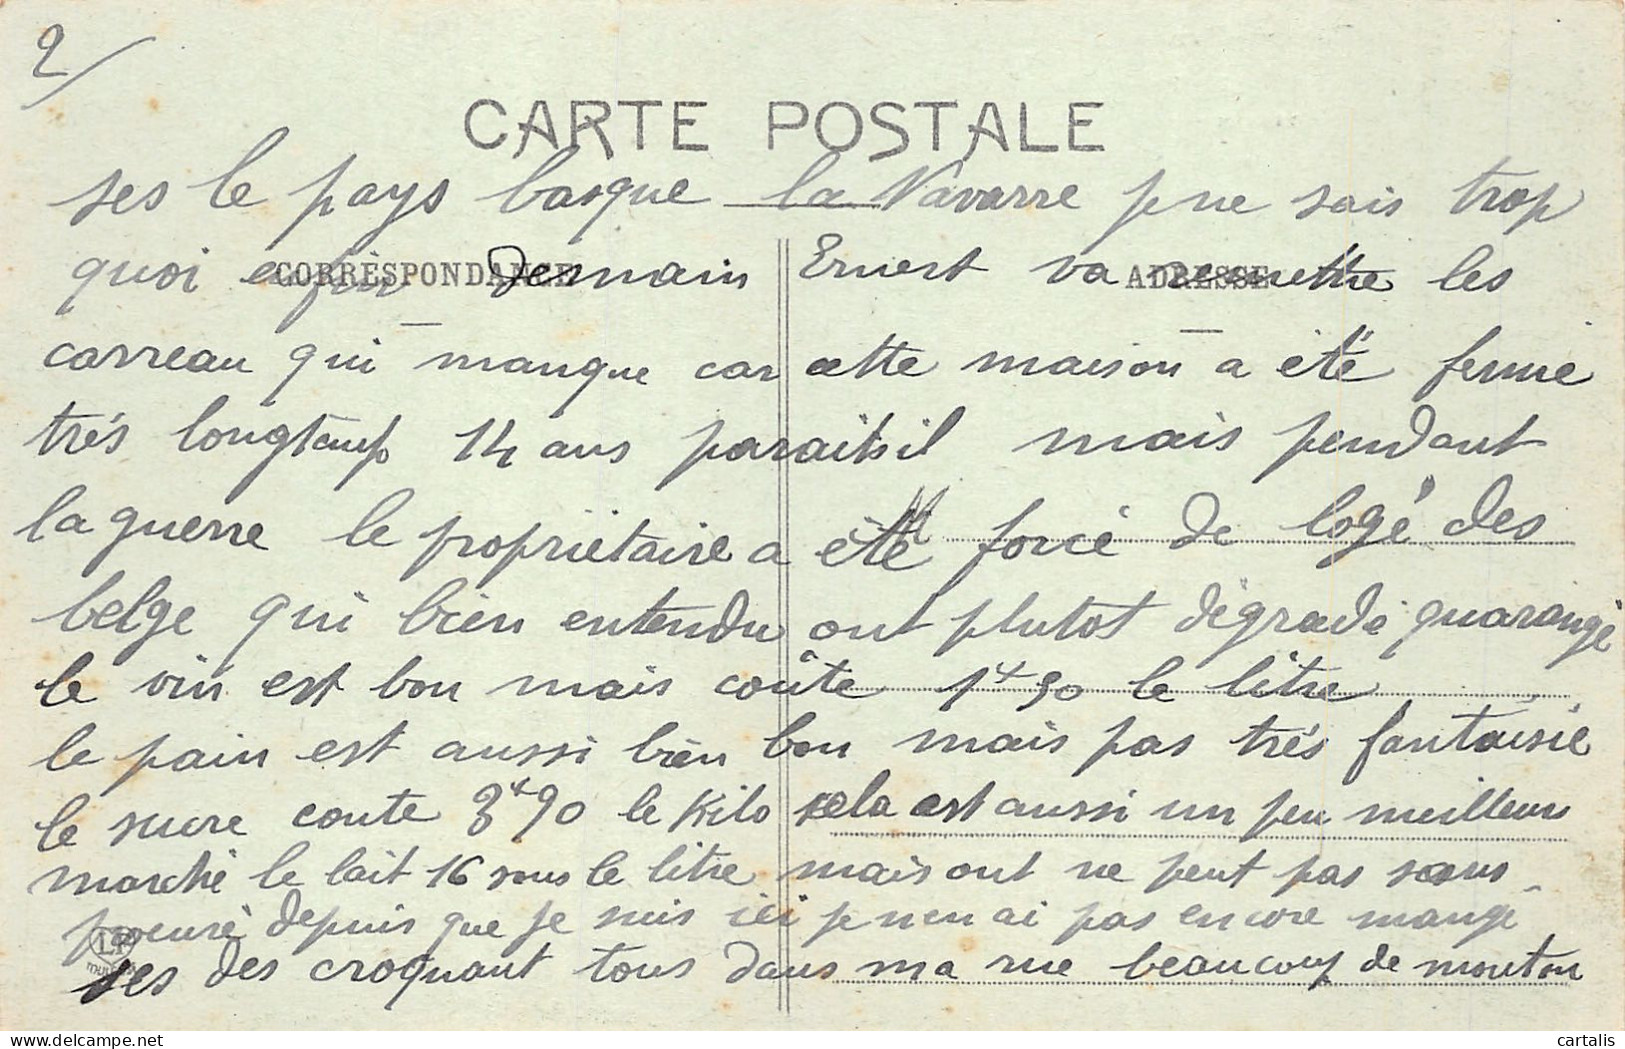 2/
CARTE POSTALE
ses le pays basque la Navarre je ne sais trop
CORRESPONDANCE
ADRESSE
quoi enfin Demain Ernest va remettre les
carreau qui manque car cette maison a été fermé
très longtemp 14 ans paraitsil mais pendant
la guerre le propriétaire a été forcé de logé des
belge qui bien entendu ont plutot dégradé quarangé
le vin est bon mais coûte 1f 90 le litre
le pain est aussi bien bon mais pas très fantaisie
le sucre coute 3f 90 le kilo cela est aussi un peu meilleur
marché le lait 16 sous le litre mais ont ne peut pas sans
procuré depuis que je suis ici je n'en ai pas encore mangé
LP
ses des croquant tous dans ma rue beaucoup de mouton
cartalis.com